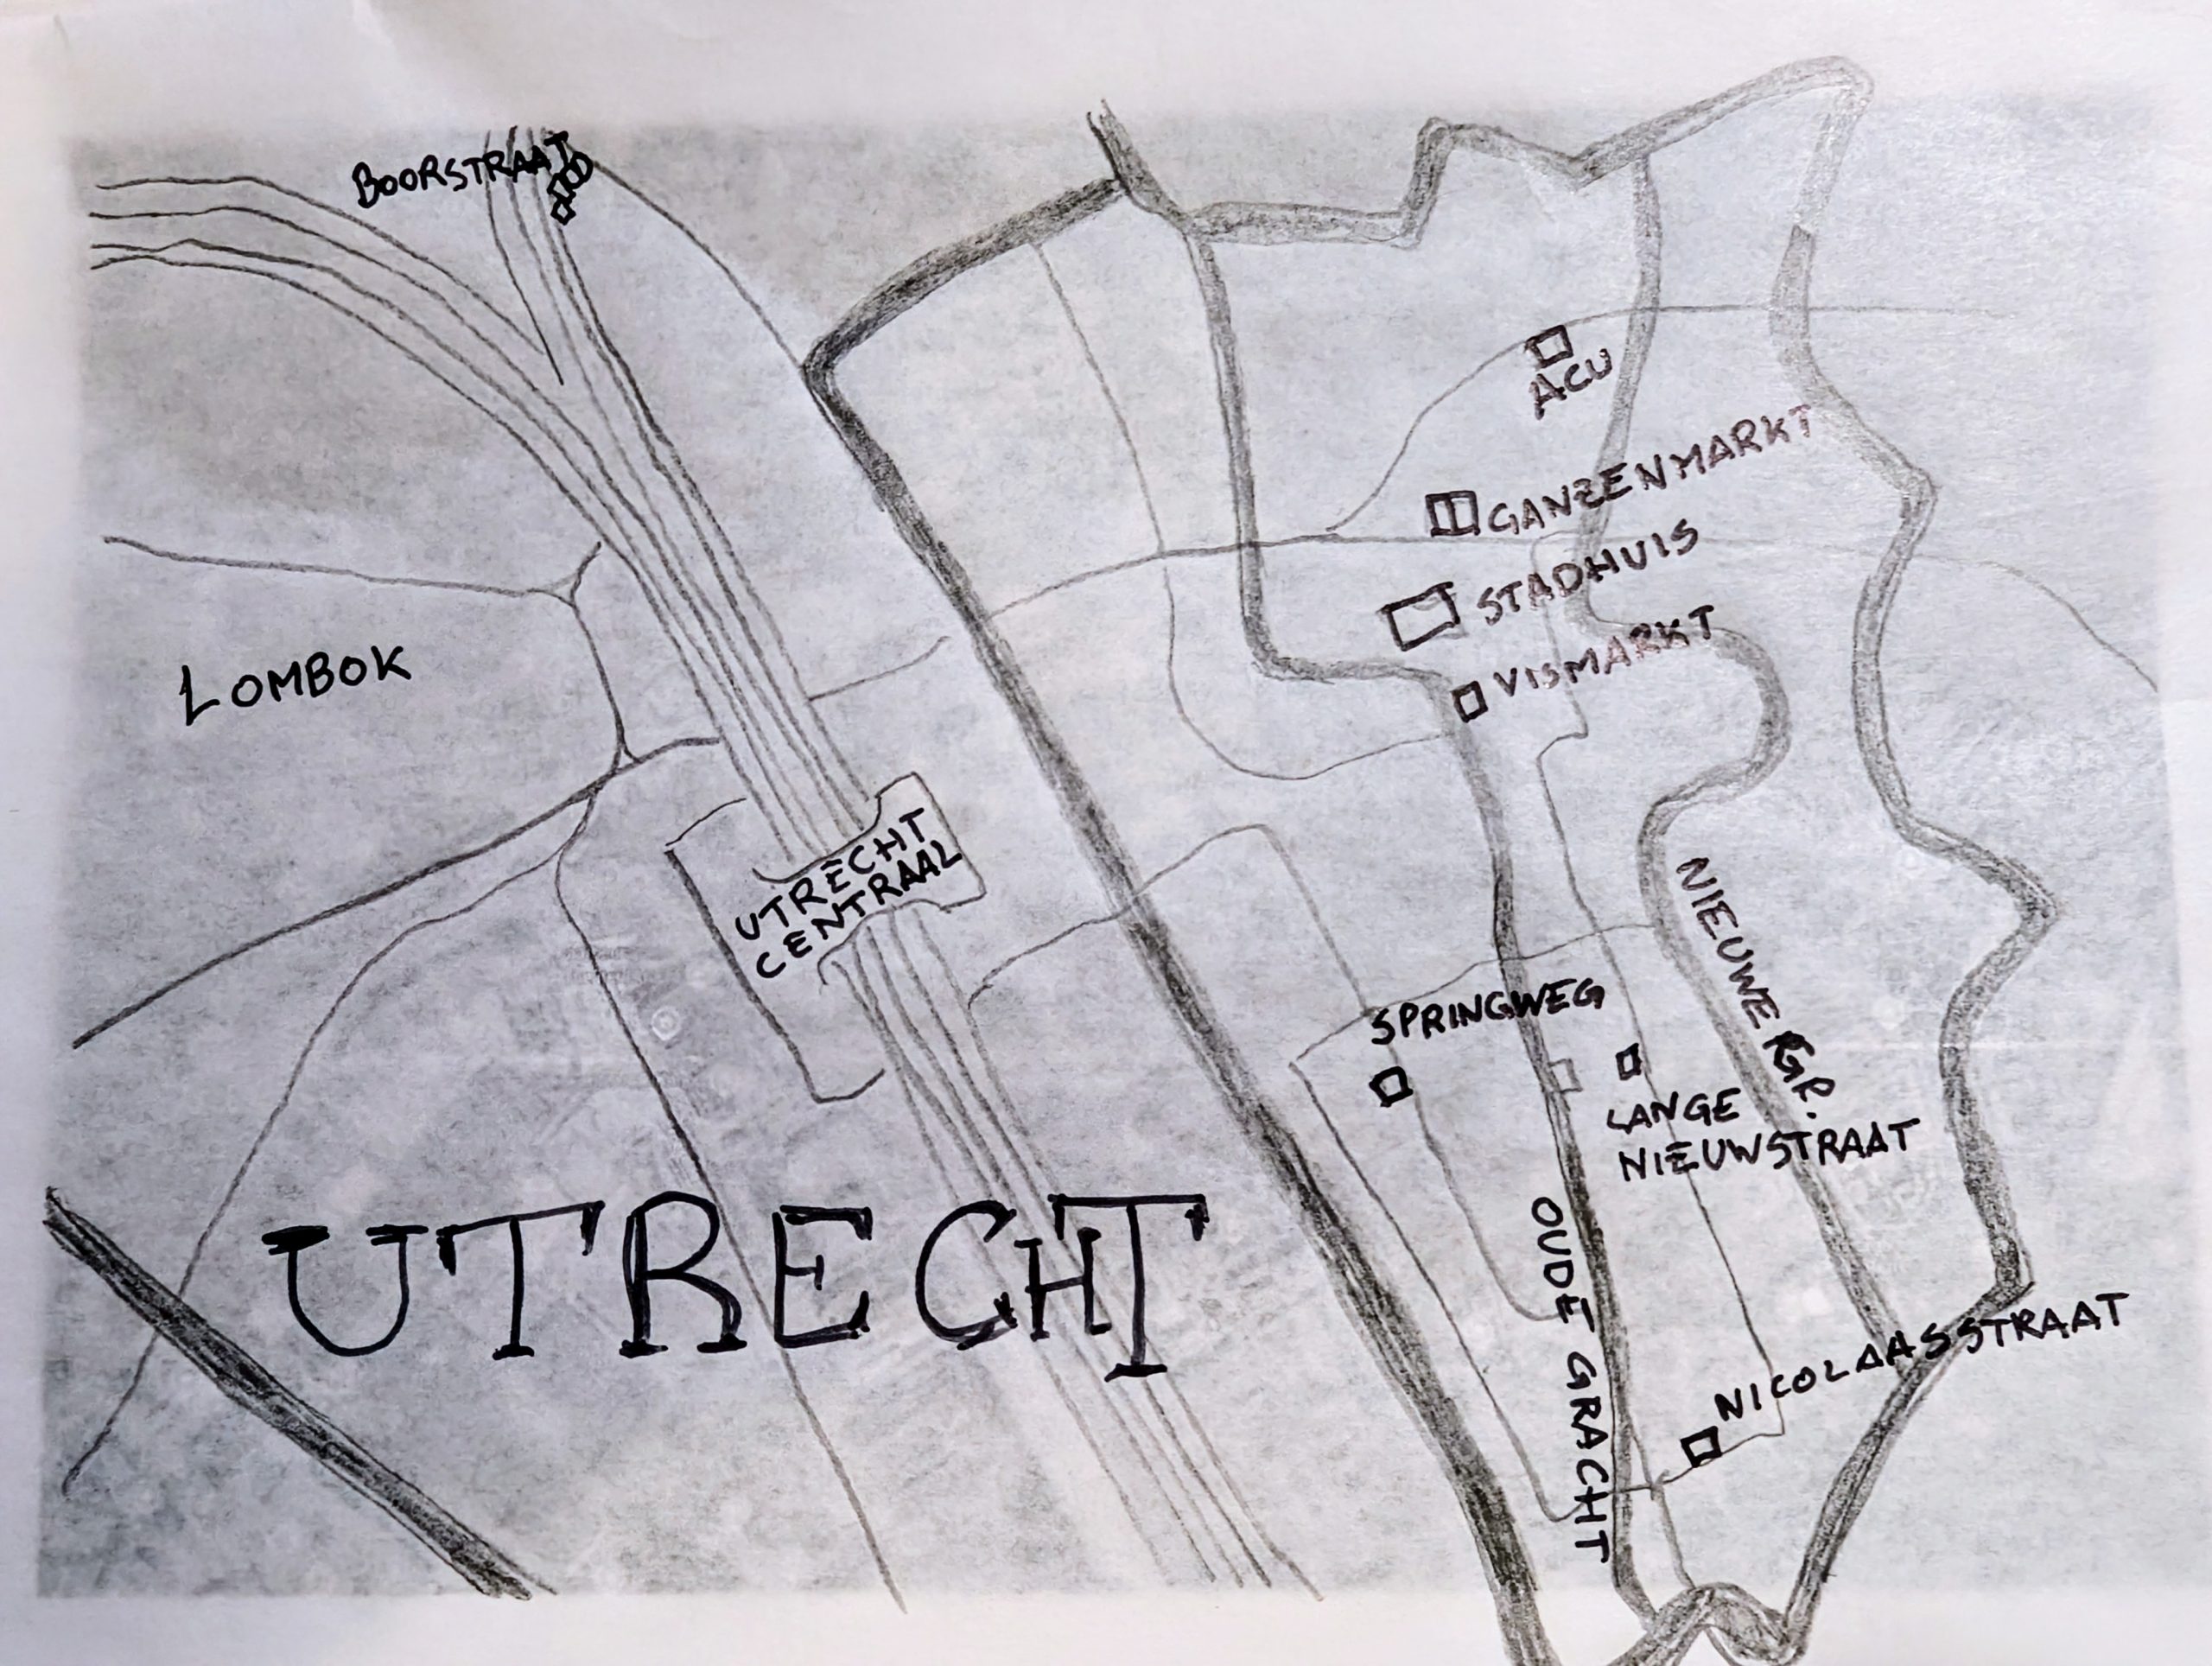 BOORSTRAAT
ACU
GANZENMARKT
STADHUIS
VISMARKT
LOMBOK
UTRECHT
CENTRAAL
NIEUWE GR.
SPRINGWEG
LANGE
NIEUWSTRAAT
OUDE GRACHT
UTRECHT
NICOLAASSTRAAT